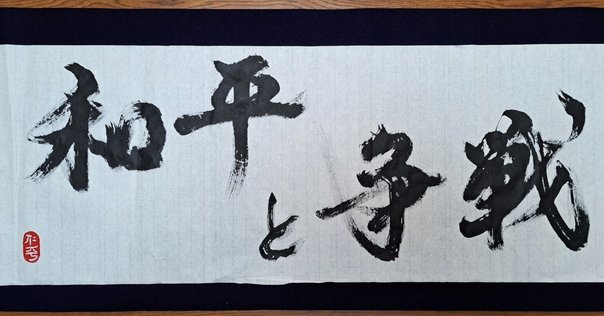 戦争と平和